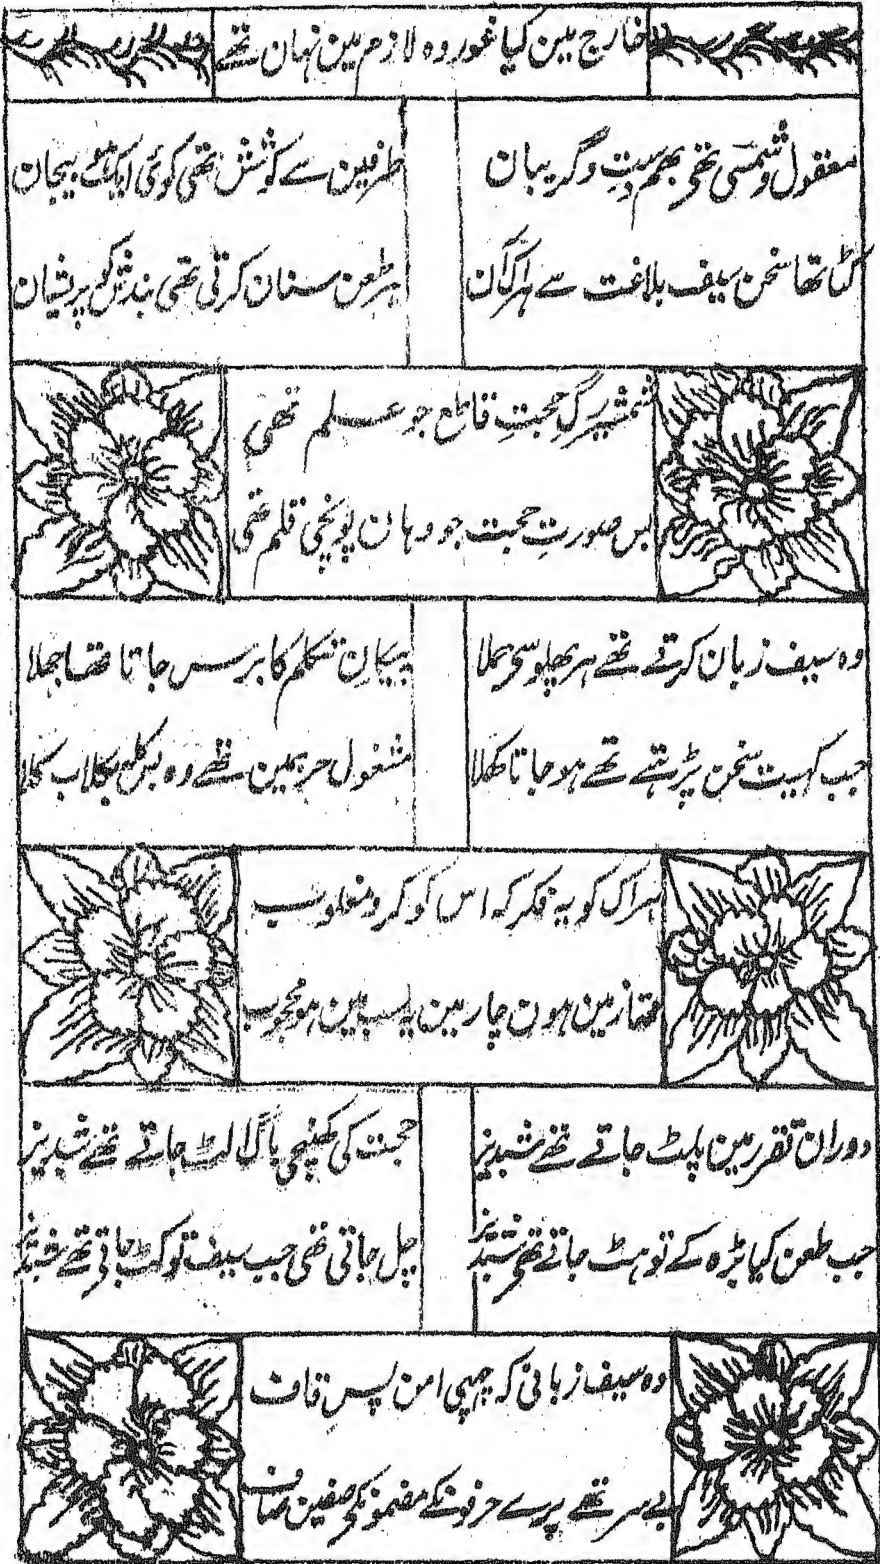 خارج مین کیا غور وہ لازم مین نہان تھے
معقول و شمسی تھے بہم دست و گریبان
طرفین سے کوشش تھی کوئی ایک نہ پیجان
کٹتا تھا سخن سیف بلاغت سے ہراک آن
ہر طعن سنان کرتی تھی بندش کو پریشان
شمشیر رگِ حجتِ قاطع جو علم تھی
بس صورتِ حجت جو وہان پونچی قلم تھی
وہ سیف زبان کرتے تھے ہر پہلو سے حملا
پیکانِ تکلم کا برس جاتا تھا جملا
جب کہیت سخن پڑہتے تھے ہو جاتا کھلا
مشغول حریمین تھے وہ
ہر اک کو یہ فکر کہ اس کو کرو مغلوب
ممتاز مین ہون چار مین یہ سب مین ہو محجوب
دوران تقریر مین پلٹ جاتے تھے شبدیز
حجت کی کھنچی باگ الٹ جاتے تھے شبدیز
جب طعن کیا بڑہ کے تو ہٹ جاتے تھے شبدیز
چل جاتی تھی جب سیف تو کٹ جاتے تھے شبدیز
وہ سیف زبانی کہ چھپی امن پس قاف
بے سر تھے پرے حرفونکے مضمونکی صفین صاف